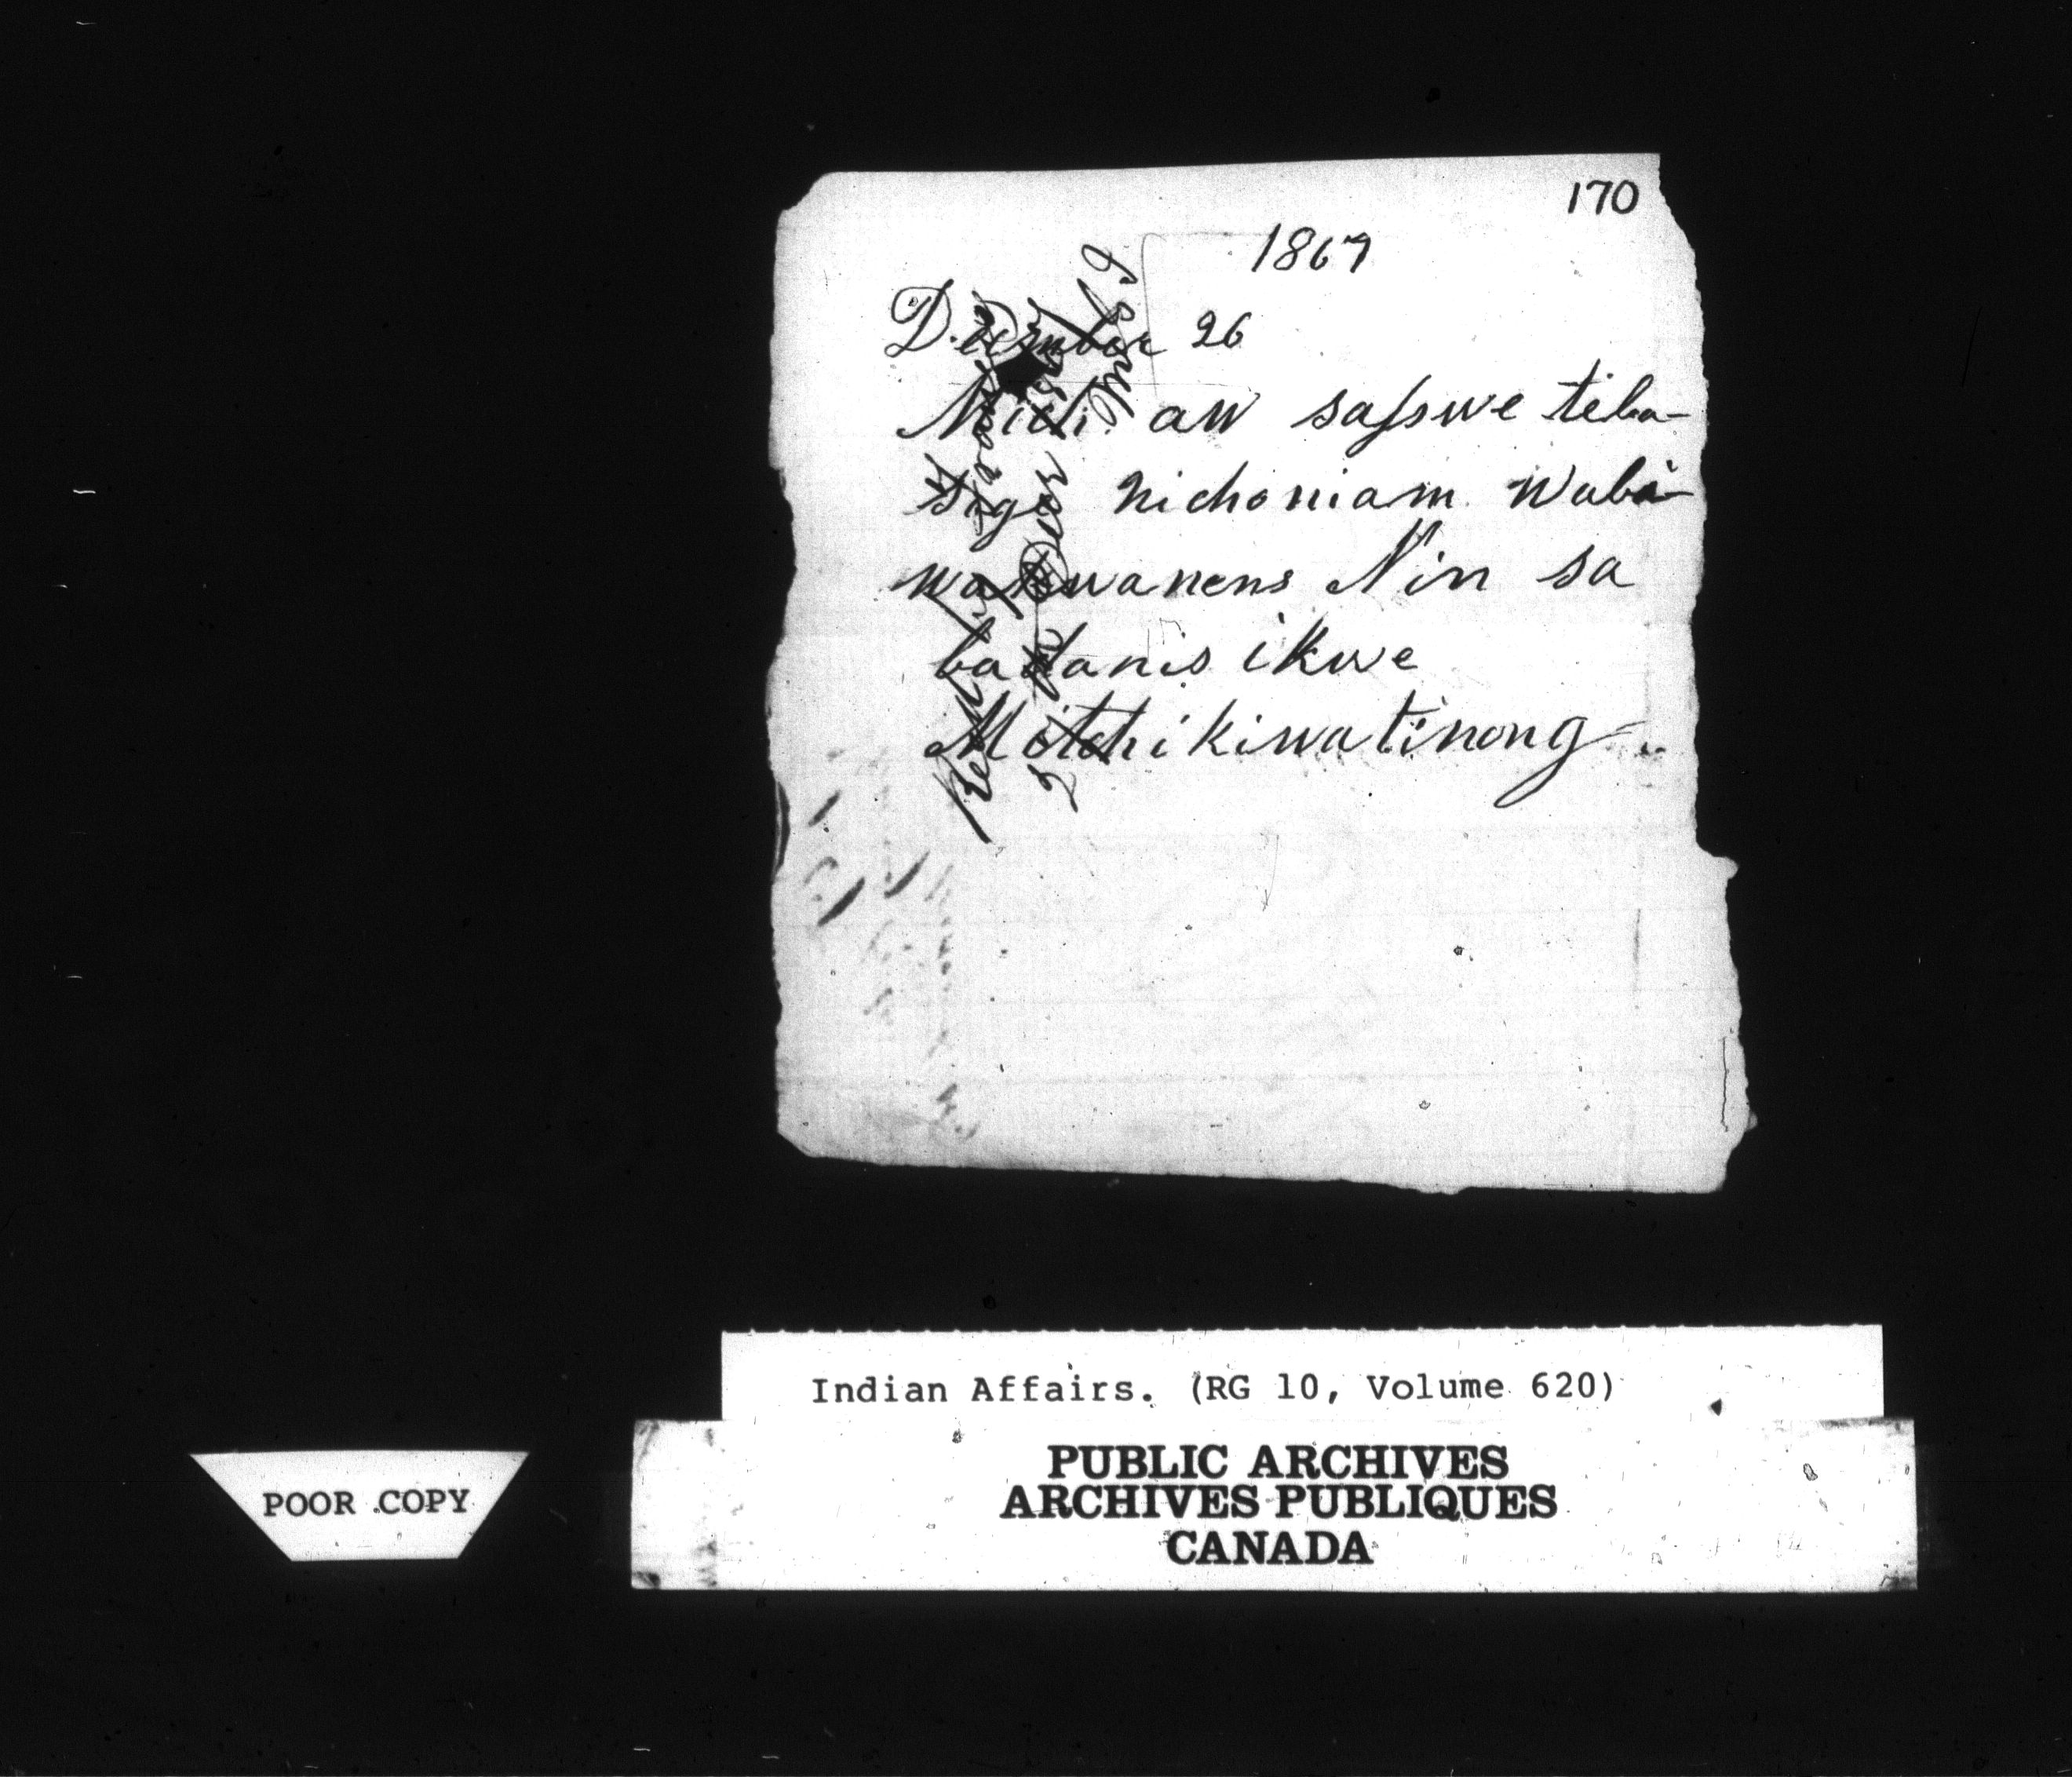 170
1867
December 26
Mich aw saſswe teba-
sige nichoniam Wabi-
wakwanens Nin sa
badanis ikwe
Mitchikiwatinong
Indian Affairs. (RG 10, Volume 620)
PUBLIC ARCHIVES
ARCHIVES PUBLIQUES
CANADA
POOR COPY